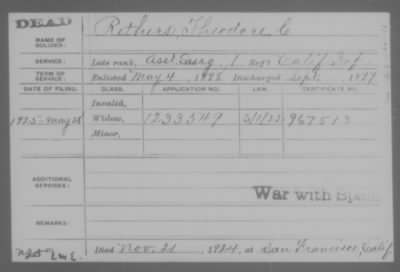 DEAD
NAME OF SOLDIER: Rethers, Theodore C
SERVICE: Late rank, Asst. Surg, 1 Regt Calif Inf
TERM OF SERVICE: Enlisted May 4, 1898 Discharged Sept , 1899
DATE OF FILING. CLASS. APPLICATION NO. LAW. CERTIFICATE NO.
Invalid,
1925-May 28 Widow, 1233549 5/1/22 967513
Minor,
ADDITIONAL SERVICES:
War with Spain
REMARKS:
Died Nov. 21, 1924, at San Francisco, Calif.